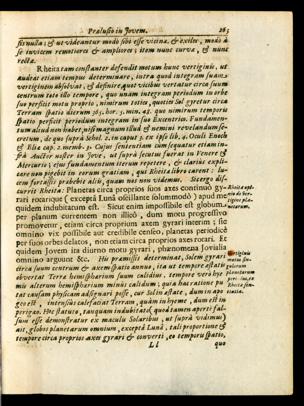 Prælusio in Jovem. 265
fis nulla; & ut videantur modò sibi esse vicina, & exilia, modò à
se invicem remotiora & ampliora; item nunc curva, & nunc
recta.
Rheita tam constanter defendit motum hunc vertiginis, ut
audeat etiam tempus determinare, intra quod integram suam
vertiginem absolvat; & definiat quot vicibus vertatur circa suum
centrum toto illo tempore, quo unam integram periodum in orbe
suo perficit motu proprio, nimirum toties, quoties Sol gyretur circa
Terram spatio dierum 365. hor. 5. min. 49. quo nimirum temporis
spatio perficit periodum integram in suo Excentrico. Fundamen-
tum aliud non habet, nisi magnum illud & nemini revelandum se-
cretum, de quo suprà Schol. 2. in caput 5. ex ipso lib. 4. Oculi Enoch
& Eliæ cap. 2. memb. 3. Cujus sententiam cum sequatur etiam in-
frà Auctor noster in Jove, ut suprà secutus fuerat in Venere &
Mercurio; ejus fundamentum iterum repetere, & clarius expli-
care non pigebit in eorum gratiam, qui Rheita libro carent: lu-
cem fortassis præbebit aliis, quam nos non videmus. Sic ergo dis-
currit Rheita: Planetas circa proprios suos axes continuò gy-
rari rotarique (exceptâ Lunâ oscillante solummodò) apud me
quidem indubitatum est. Sicut enim impossibile est globum
per planum currentem non illicò, dum motu progressivo
promovetur, etiam circa proprium axem gyrari interim; sic
omnino vix possibile aut credibile censeo, planetas periodicè
per suos orbes delatos, non etiam circa proprios axes rotari. Et
quidem Jovem ita diurno motu gyrari, phænomena Jovialia
omnino arguunt &c. His præmissis determinat, Solem gyrari
circa suum centrum & axem spatio annuo, ita ut tempore æstatis
obvertat Terræ hemisphærium suum calidius, tempore verò hye-
mis alterum hemisphærium minus calidum; quia hac ratione pu-
tat causam physicam assignari posse, cur Sol in æstate, dum in apo-
geo est, intensius calefaciat Terram, quàm in hyeme, dum est in
perigæo. Hoc statuto, tanquam indubitato (quod tamen aperte fal-
sum esse demonstratur ex maculis Solaribus, ut suprà vidimus)
ait, globos planetarum omnium, exceptâ Lunâ, tali proportione &
tempore circa proprios axem gyrari & converti, eo temporis spatio,
Ll quo
Rheita expli-
Vertiginis
motus sin-
gulorum
planetarum